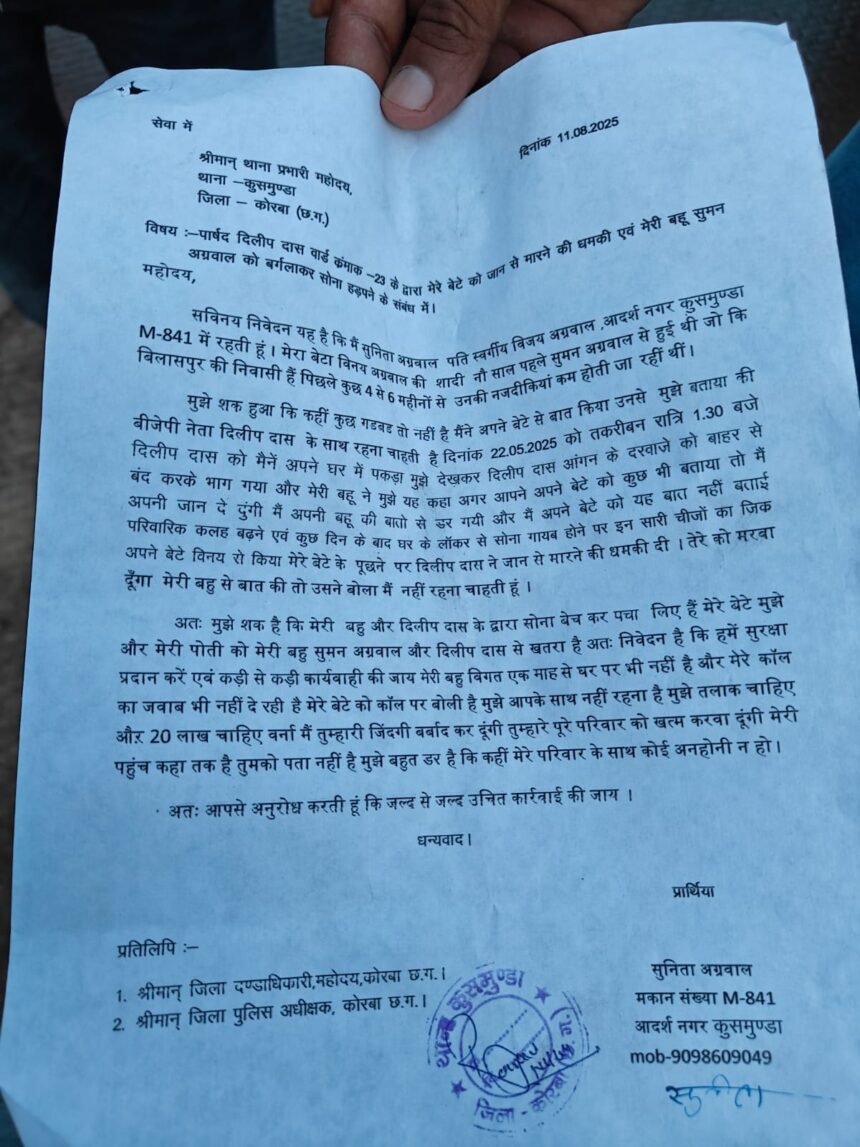 सेवा में
दिनांक 11.08.2025
श्रीमान् थाना प्रभारी महोदय,
थाना –कुसमुण्डा
जिला – कोरबा (छ.ग.)
विषय :–पार्षद दिलीप दास वार्ड कंमाक –23 के द्वारा मेरे बेटे को जान से मारने की धमकी एवं मेरी बहू सुमन
अग्रवाल को बर्गलाकर सोना हड़पने के संबंध में।
महोदय,
सविनय निवेदन यह है कि मैं सुनिता अग्रवाल पति स्वर्गीय विजय अग्रवाल ,आदर्श नगर कुसमुण्डा
M-841 में रहती हूं । मेरा बेटा विनय अग्रवाल की शादी नौ साल पहले सुमन अग्रवाल से हुई थी जो कि
बिलासपुर की निवासी हैं पिछले कुछ 4 से 6 महीनों से उनकी नजदीकियां कम होती जा रहीं थीं।
मुझे शक हुआ कि कहीं कुछ गडबड तो नहीं है मैंने अपने बेटे से बात किया उनसे मुझे बताया की
बीजेपी नेता दिलीप दास के साथ रहना चाहती है दिनांक 22.05.2025 को तकरीबन रात्रि 1.30 बजे
दिलीप दास को मैनें अपने घर में पकड़ा मुझे देखकर दिलीप दास आंगन के दरवाजे को बाहर से
बंद करके भाग गया और मेरी बहू ने मुझे यह कहा अगर आपने अपने बेटे को कुछ भी बताया तो मैं
अपनी जान दे दुंगी मैं अपनी बहू की बातो से डर गयी और मैं अपने बेटे को यह बात नहीं बताई
परिवारिक कलह बढ़ने एवं कुछ दिन के बाद घर के लॉकर से सोना गायब होने पर इन सारी चीजों का जिक
अपने बेटे विनय रो किया मेरे बेटे के पूछने पर दिलीप दास ने जान से मारने की धमकी दी । तेरे को मरवा
दूँगा मेरी बहु से बात की तो उसने बोला मैं नहीं रहना चाहती हूं ।
अतः मुझे शक है कि मेरी बहु और दिलीप दास के द्वारा सोना बेच कर पचा लिए हैं मेरे बेटे मुझे
और मेरी पोती को मेरी बहु सुमन अग्रवाल और दिलीप दास से खतरा है अतः निवेदन है कि हमें सुरक्षा
प्रदान करें एवं कड़ी से कड़ी कार्यवाही की जाय मेरी बहु विगत एक माह से घर पर भी नहीं है और मेरे कॉल
का जवाब भी नहीं दे रही है मेरे बेटे को कॉल पर बोली है मुझे आपके साथ नहीं रहना है मुझे तलाक चाहिए
और 20 लाख चाहिए वर्ना मैं तुम्हारी जिंदगी बर्बाद कर दूंगी तुम्हारे पूरे परिवार को खत्म करवा दूंगी मेरी
पहुंच कहा तक है तुमको पता नहीं है मुझे बहुत डर है कि कहीं मेरे परिवार के साथ कोई अनहोनी न हो।
अतः आपसे अनुरोध करती हूं कि जल्द से जल्द उचित कार्रवाई की जाय ।
धन्यवाद।
प्रार्थिया
प्रतिलिपि :–
1. श्रीमान् जिला दण्डाधिकारी,महोदय,कोरबा छ.ग.।
2. श्रीमान् जिला पुलिस अधीक्षक, कोरबा छ.ग.।
सुनिता अग्रवाल
मकान संख्या M-841
आदर्श नगर कुसमुण्डा
mob-9098609049
थाना कुसमुण्डा
जिला - कोरबा (छ.ग.)
सुनीता